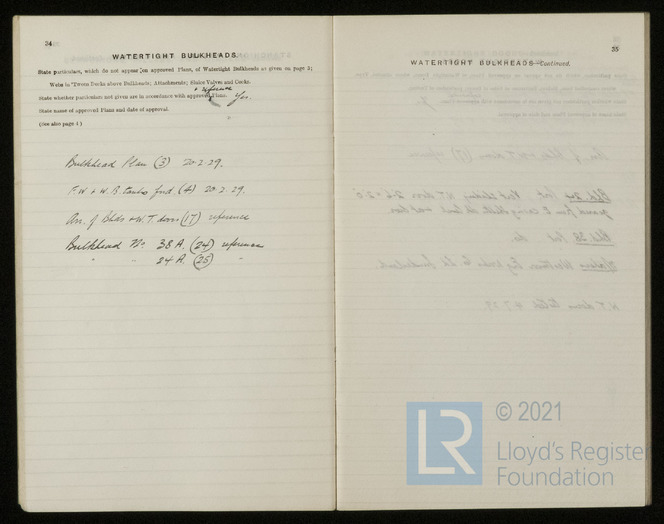 34
WATERTIGHT BULKHEADS.
State particulars, which do not appear on approved Plans, of Watertight Bulkheads as given on page 2;
Webs in 'Tween Decks above Bulkheads; Attachments; Sluice Valves and Cocks.
+ reference
State whether particulars not given are in accordance with approved Plans. Yes.
State name of approved Plans and date of approval.
(See also page 4)
Bulkhead Plan (3) 20.2.29.
F.W. & W.B. tanks fwd. (4) 20.2.29.
Arr. of Bhds & W.T. doors (17) reference
Bulkhead No 38 A. (24) reference
" " 84 A. (25) "
35
WATERTIGHT BULKHEADS—Continued.
LR
© 2021
Lloyd's Register
Foundation